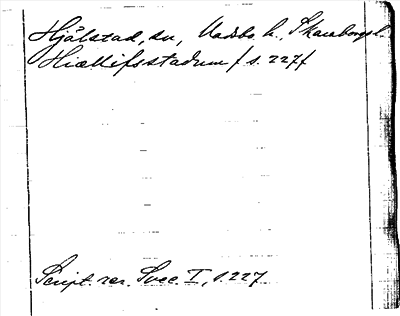 Hjälstad, sn, Vadsbo h., Skaraborgs l.
Hiællifsstadum / s. 227 /
Script. rer. Svec. I, s. 227